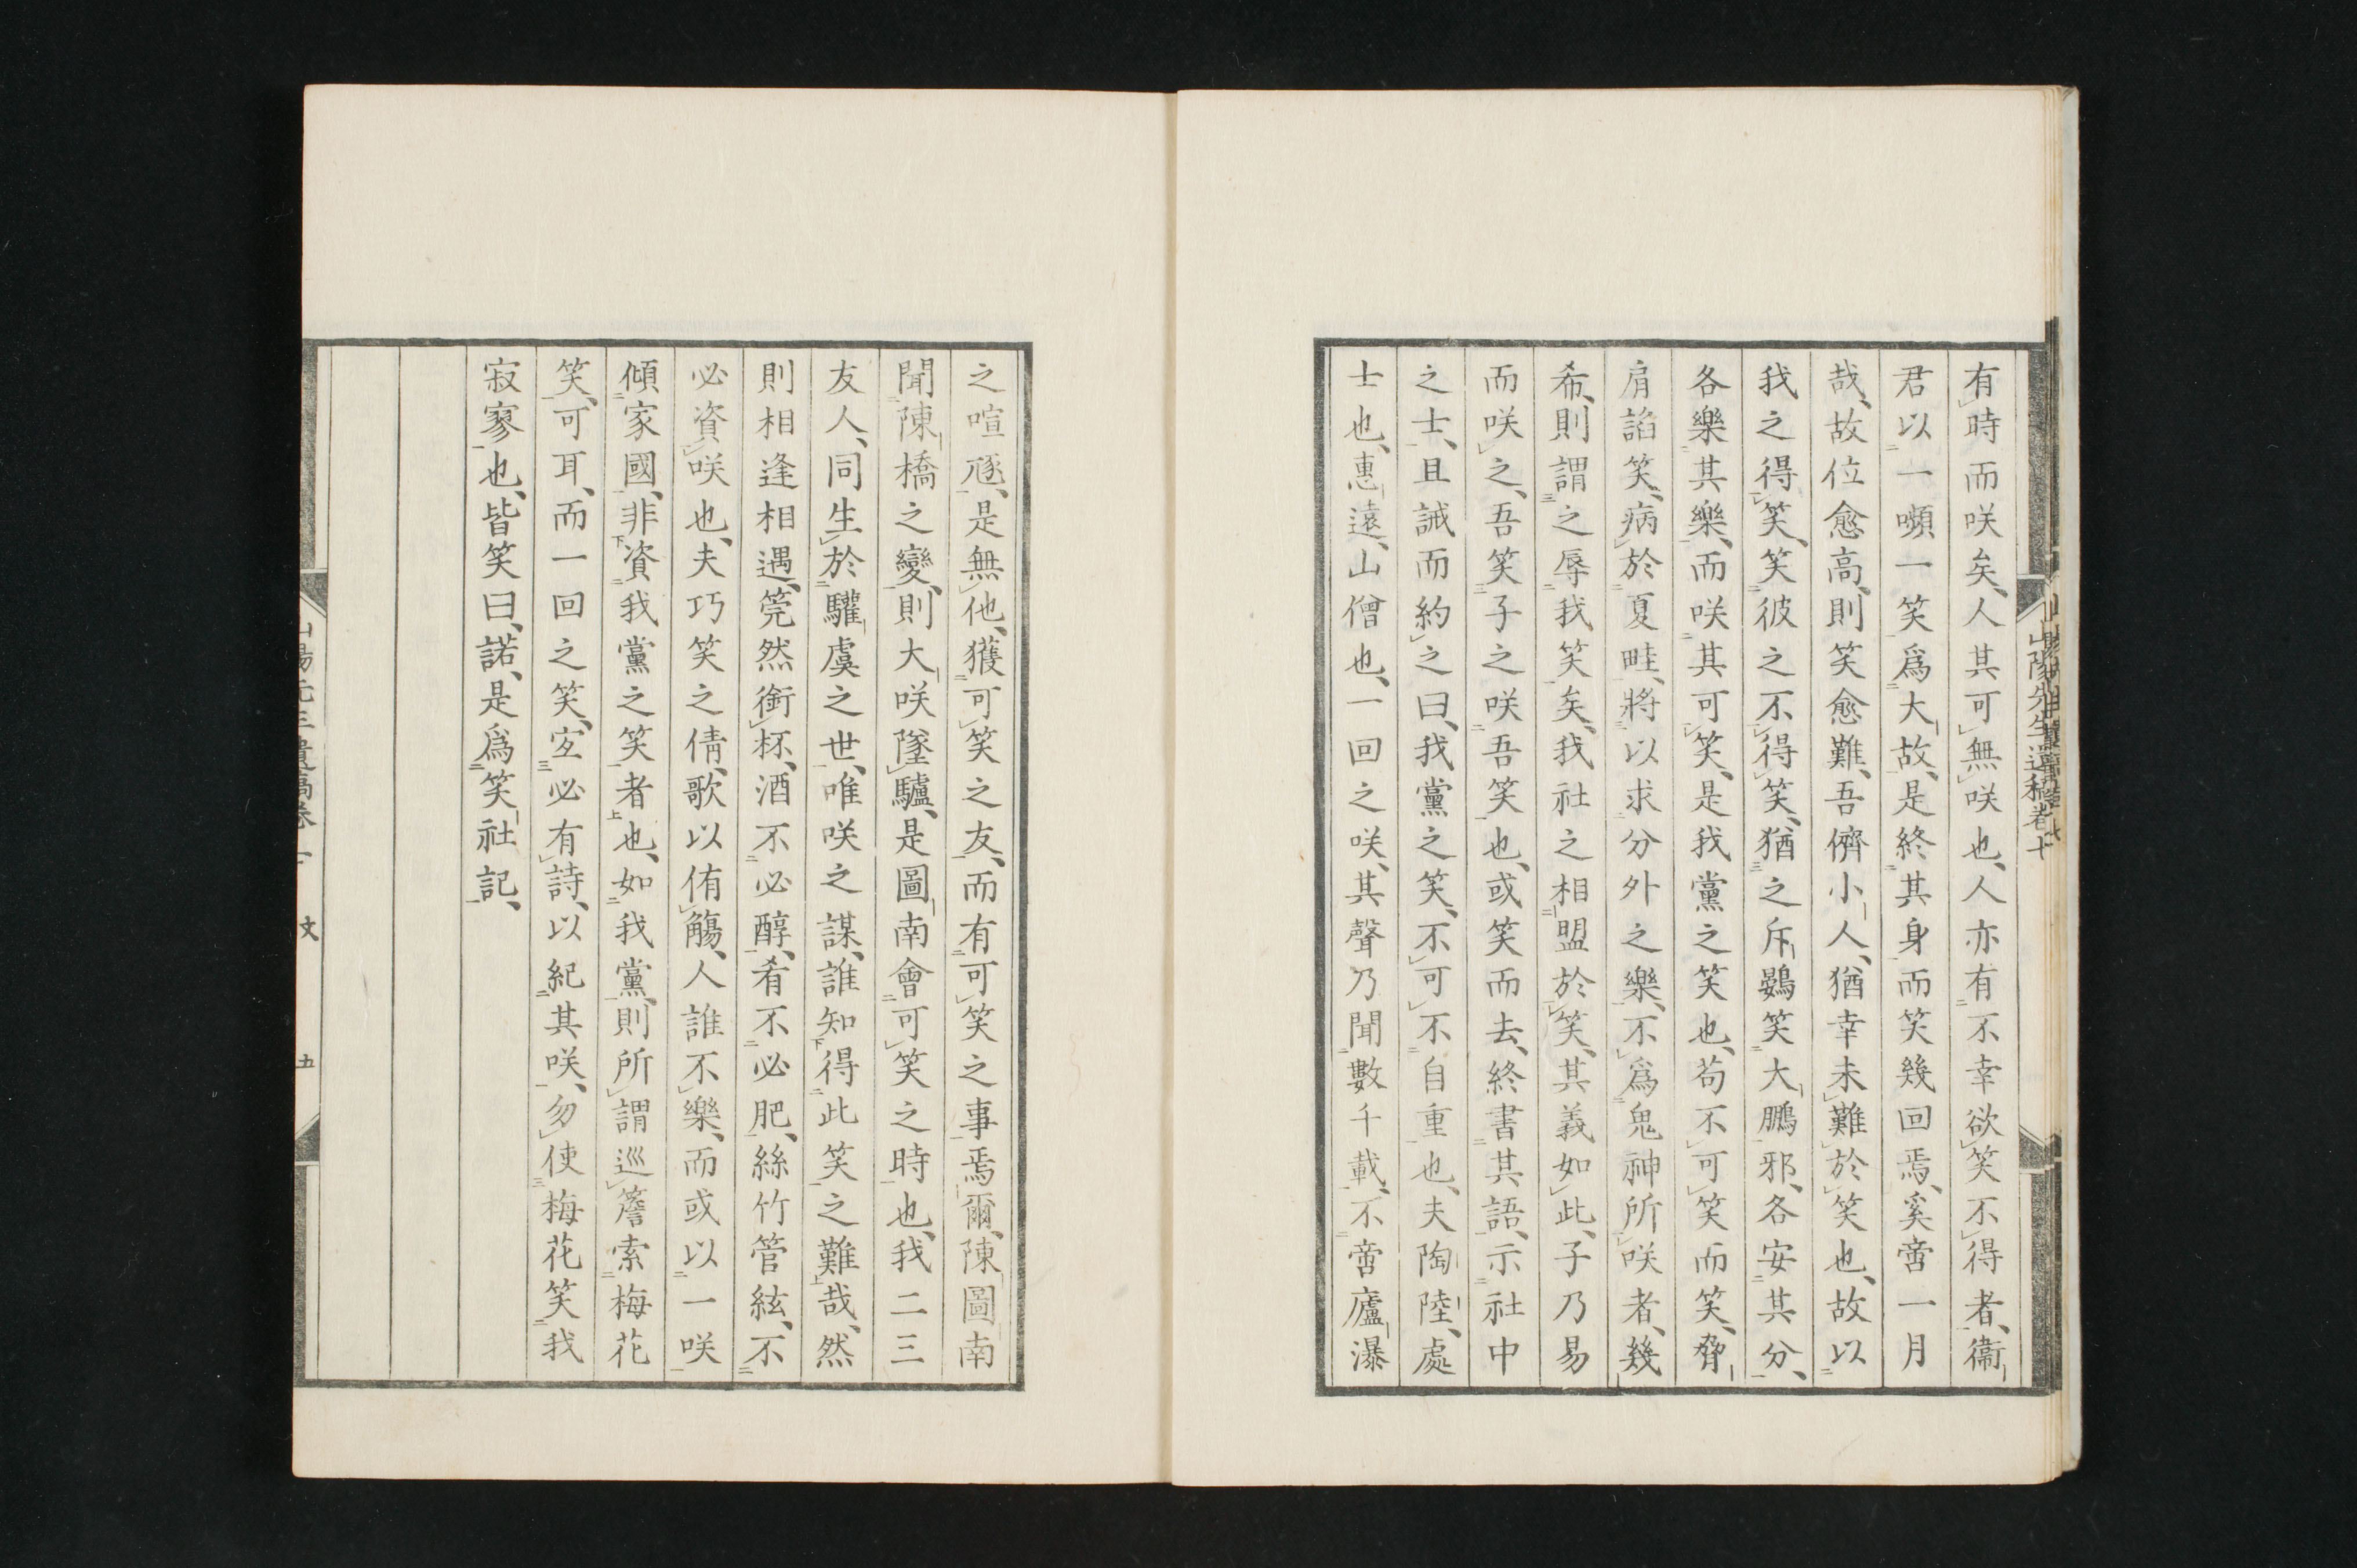 有時而咲矣、人其可無咲也、人亦有不幸欲笑不得者、衞
君以一嚬一笑爲大故、是終其身而笑幾回焉、奚啻一月
哉、故位愈高、則笑愈難、吾儕小人、猶幸未難於笑也、故以
我之得笑、笑彼之不得笑、猶之斥鷃笑大鵬邪、各安其分、
各樂其樂、而咲其可笑、是我黨之笑也、苟不可笑而笑、脅
肩諂笑、病於夏畦、將以求分外之樂、不爲鬼神所咲者、幾
希、則謂之辱我笑矣、我社之相盟於笑、其義如此、子乃易
而咲之、吾笑子之咲吾笑也、或笑而去、終書其語、示社中
之士、且誡而約之曰、我黨之笑、不可不自重也、夫陶陸、處
士也、惠遠、山僧也、一回之咲、其聲乃聞數千載、不啻廬瀑
之喧豗、是無他、獲可笑之友、而有可笑之事焉爾、陳圖南
聞陳橋之變、則大咲墜驢、是圖南會可笑之時也、我二三
友人、同生於驩虞之世、唯咲之謀、誰知得此笑之難哉、然
則相逢相遇、筦然銜杯、酒不必醇、肴不必肥、絲竹管絃、不
必資咲也、夫巧笑之倩、歌以侑觴、人誰不樂、而或以一咲
傾家國、非資我黨之笑者也、如我黨、則所謂巡簷索梅花
笑、可耳、而一回之笑、宜必有詩、以紀其咲、勿使梅花笑我
寂寥也、皆笑曰、諾、是爲笑社記、
文
五